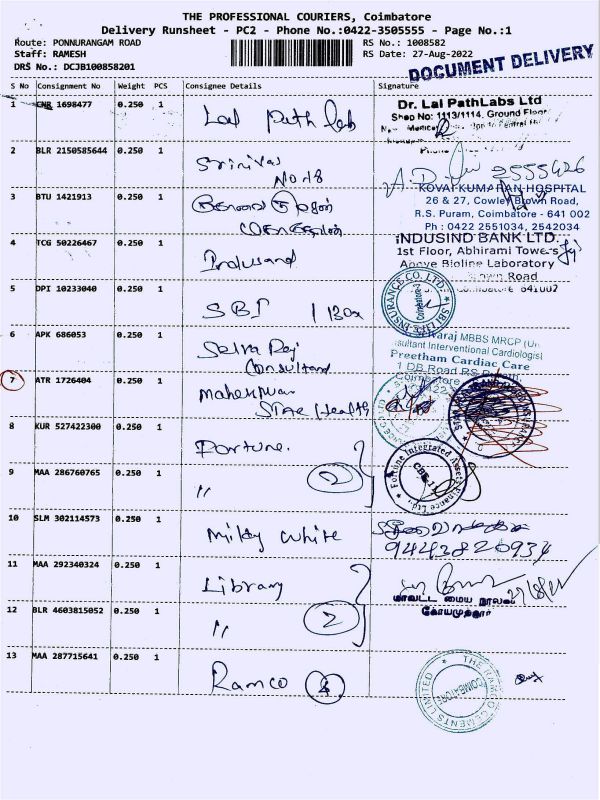 THE PROFESSIONAL COURIERS, Coimbatore
Delivery Runsheet - PC2 - Phone No.:0422-3505555 - Page No.:1
Route: PONNURANGAM ROAD
RS No.: 1008582
Staff: RAMESH
RS Date: 27-Aug-2022
DRS No.: DCJB100858201
DOCUMENT DELIVERY
S No Consignment No Weight PCS Consignee Details Signature
1 CNR 1698477 0.250 1 Lal path lab
Dr. Lal PathLabs Ltd
Shop No: 1113/1114, Ground Floor
2 BLR 2150585644 0.250 1 Srinivas
No 18
2555426
3 BTU 1421913 0.250 1
KOVAI KUMARAN HOSPITAL
26 & 27, Cowley Brown Road,
R.S. Puram, Coimbatore - 641 002
Ph : 0422 2551034, 2542034
4 TCG 50226467 0.250 1 Indusand
INDUSIND BANK LTD.
1st Floor, Abhirami Towers
Above Bioline Laboratory
Brown Road
Coimbatore 641002
5 DPI 10233040 0.250 1 SBI
SBI LIFE INSURANCE CO. LTD.
Coimbatore-3
6 APK 686053 0.250 1 Selva Raj
Consultand
MBBS MRCP
Interventional Cardiologist
Preetham Cardiac Care
1 DB Road RS Puram
7 ATR 1726404 0.250 1 Maheshwari
Star Health
8 KUR 527422300 0.250 1 Fortune.
9 MAA 286760765 0.250 1 " 2
Fortune Integrated Assets Finance Ltd
CBE-11
10 SLM 302114573 0.250 1 Milky White
9442820934
11 MAA 292340324 0.250 1 Library
27/8/22
மாவட்ட மைய நூலகம்
கோயமுத்தூர்
12 BLR 4603815052 0.250 1 " 2
13 MAA 287715641 0.250 1 Ramco
THE RAMCO CEMENTS LIMITED
COIMBATORE